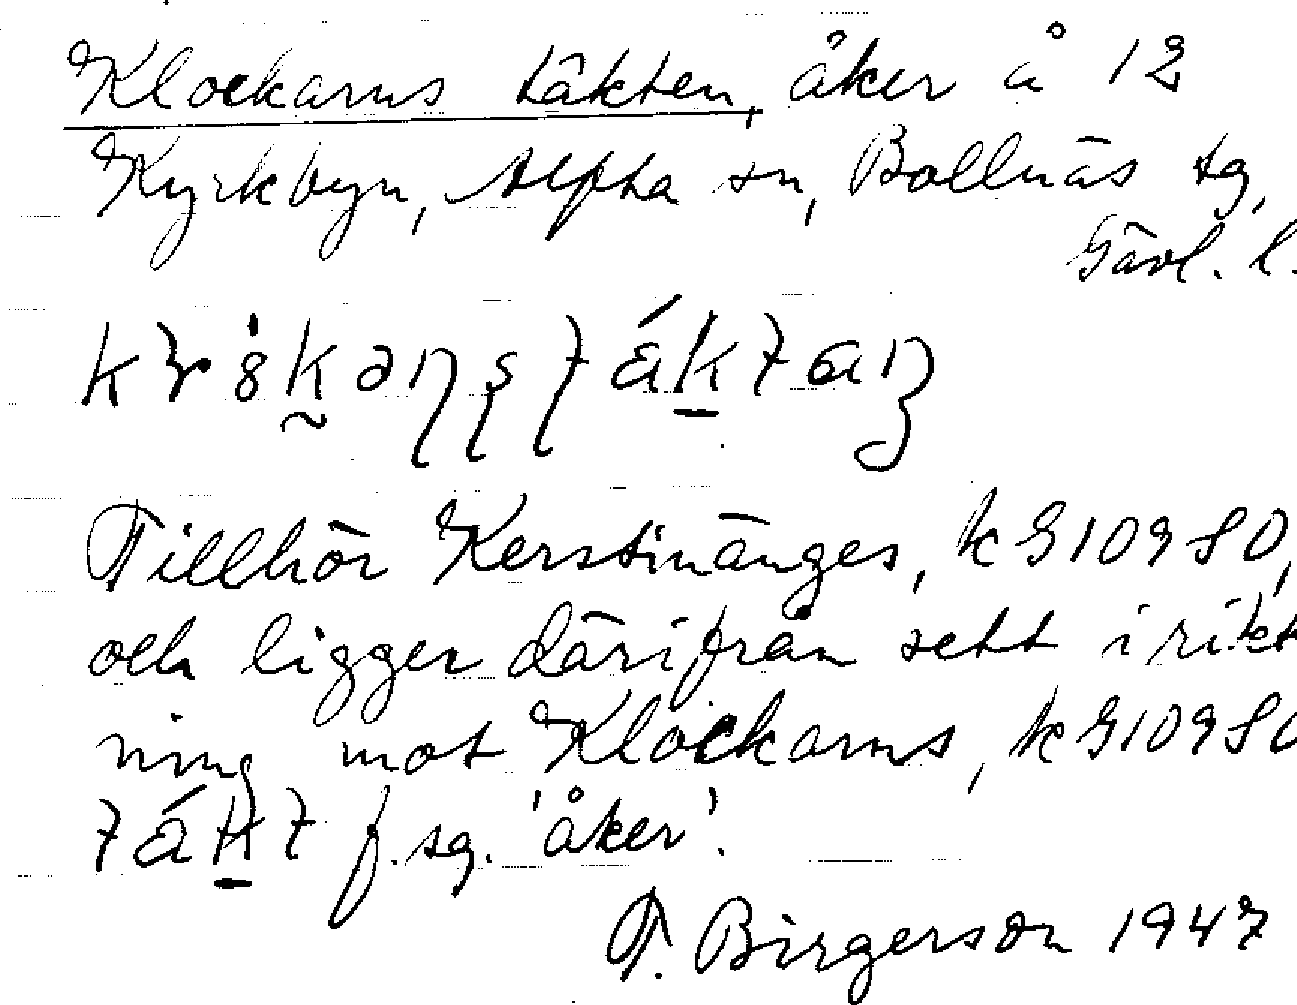 Klockarns täkten, åker å 12
Kyrkbyn, Alfta sn, Bollnäs tg,
Gävl. l.
Tillhör Kerstinänges, k 9109 80,
och ligger därifrån sett i rikt
ning mot Klockarns, k 9109 80
f. sg. 'åker'.
T. Birgerson 1947